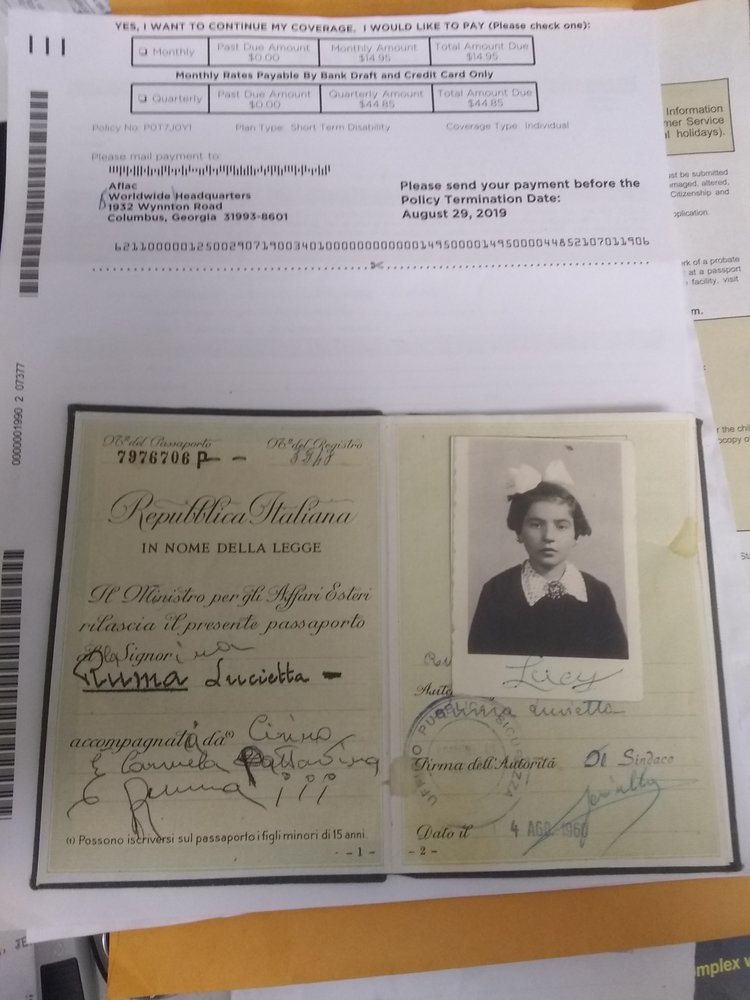 YES, I WANT TO CONTINUE MY COVERAGE. I WOULD LIKE TO PAY (Please check one):
Monthly
Past Due Amount
$0.00
Monthly Amount
$14.95
Total Amount Due
$14.95
Monthly Rates Payable By Bank Draft and Credit Card Only
Quarterly
Past Due Amount
$0.00
Quarterly Amount
$44.85
Total Amount Due
$44.85
Policy No: P0T7J0Y1 Plan Type: Short Term Disability Coverage Type: Individual
Please mail payment to:
Aflac
Worldwide Headquarters
1932 Wynnton Road
Columbus, Georgia 31993-8601
Please send your payment before the
Policy Termination Date:
August 29, 2019
0000001990 2 07377
Information
mer Service
l holidays).
ust be submitted
maged, altered,
Citizenship and
pplication.
rk of a probate
at a passport
facility, visit
m.
r the chi
ocopy o
N.º del Passaporto
7976706 P
N.º del Registro
Repubblica Italiana
IN NOME DELLA LEGGE
Il Ministro per gli Affari Esteri
rilascia il presente passaporto
Signor ina
Ruma Lucietta
accompagnat a da (1) Cirino
E Carmela
E Gemma
(1) Possono iscriversi sul passaporto i figli minori di 15 anni
- 1 -
Lucy
Ruma Lucietta
UFFICIO PUBBLICA SICUREZZA
Firma dell'Autorità Il Sindaco
Dato il 4 AGO. 1960
- 2 -
mplex